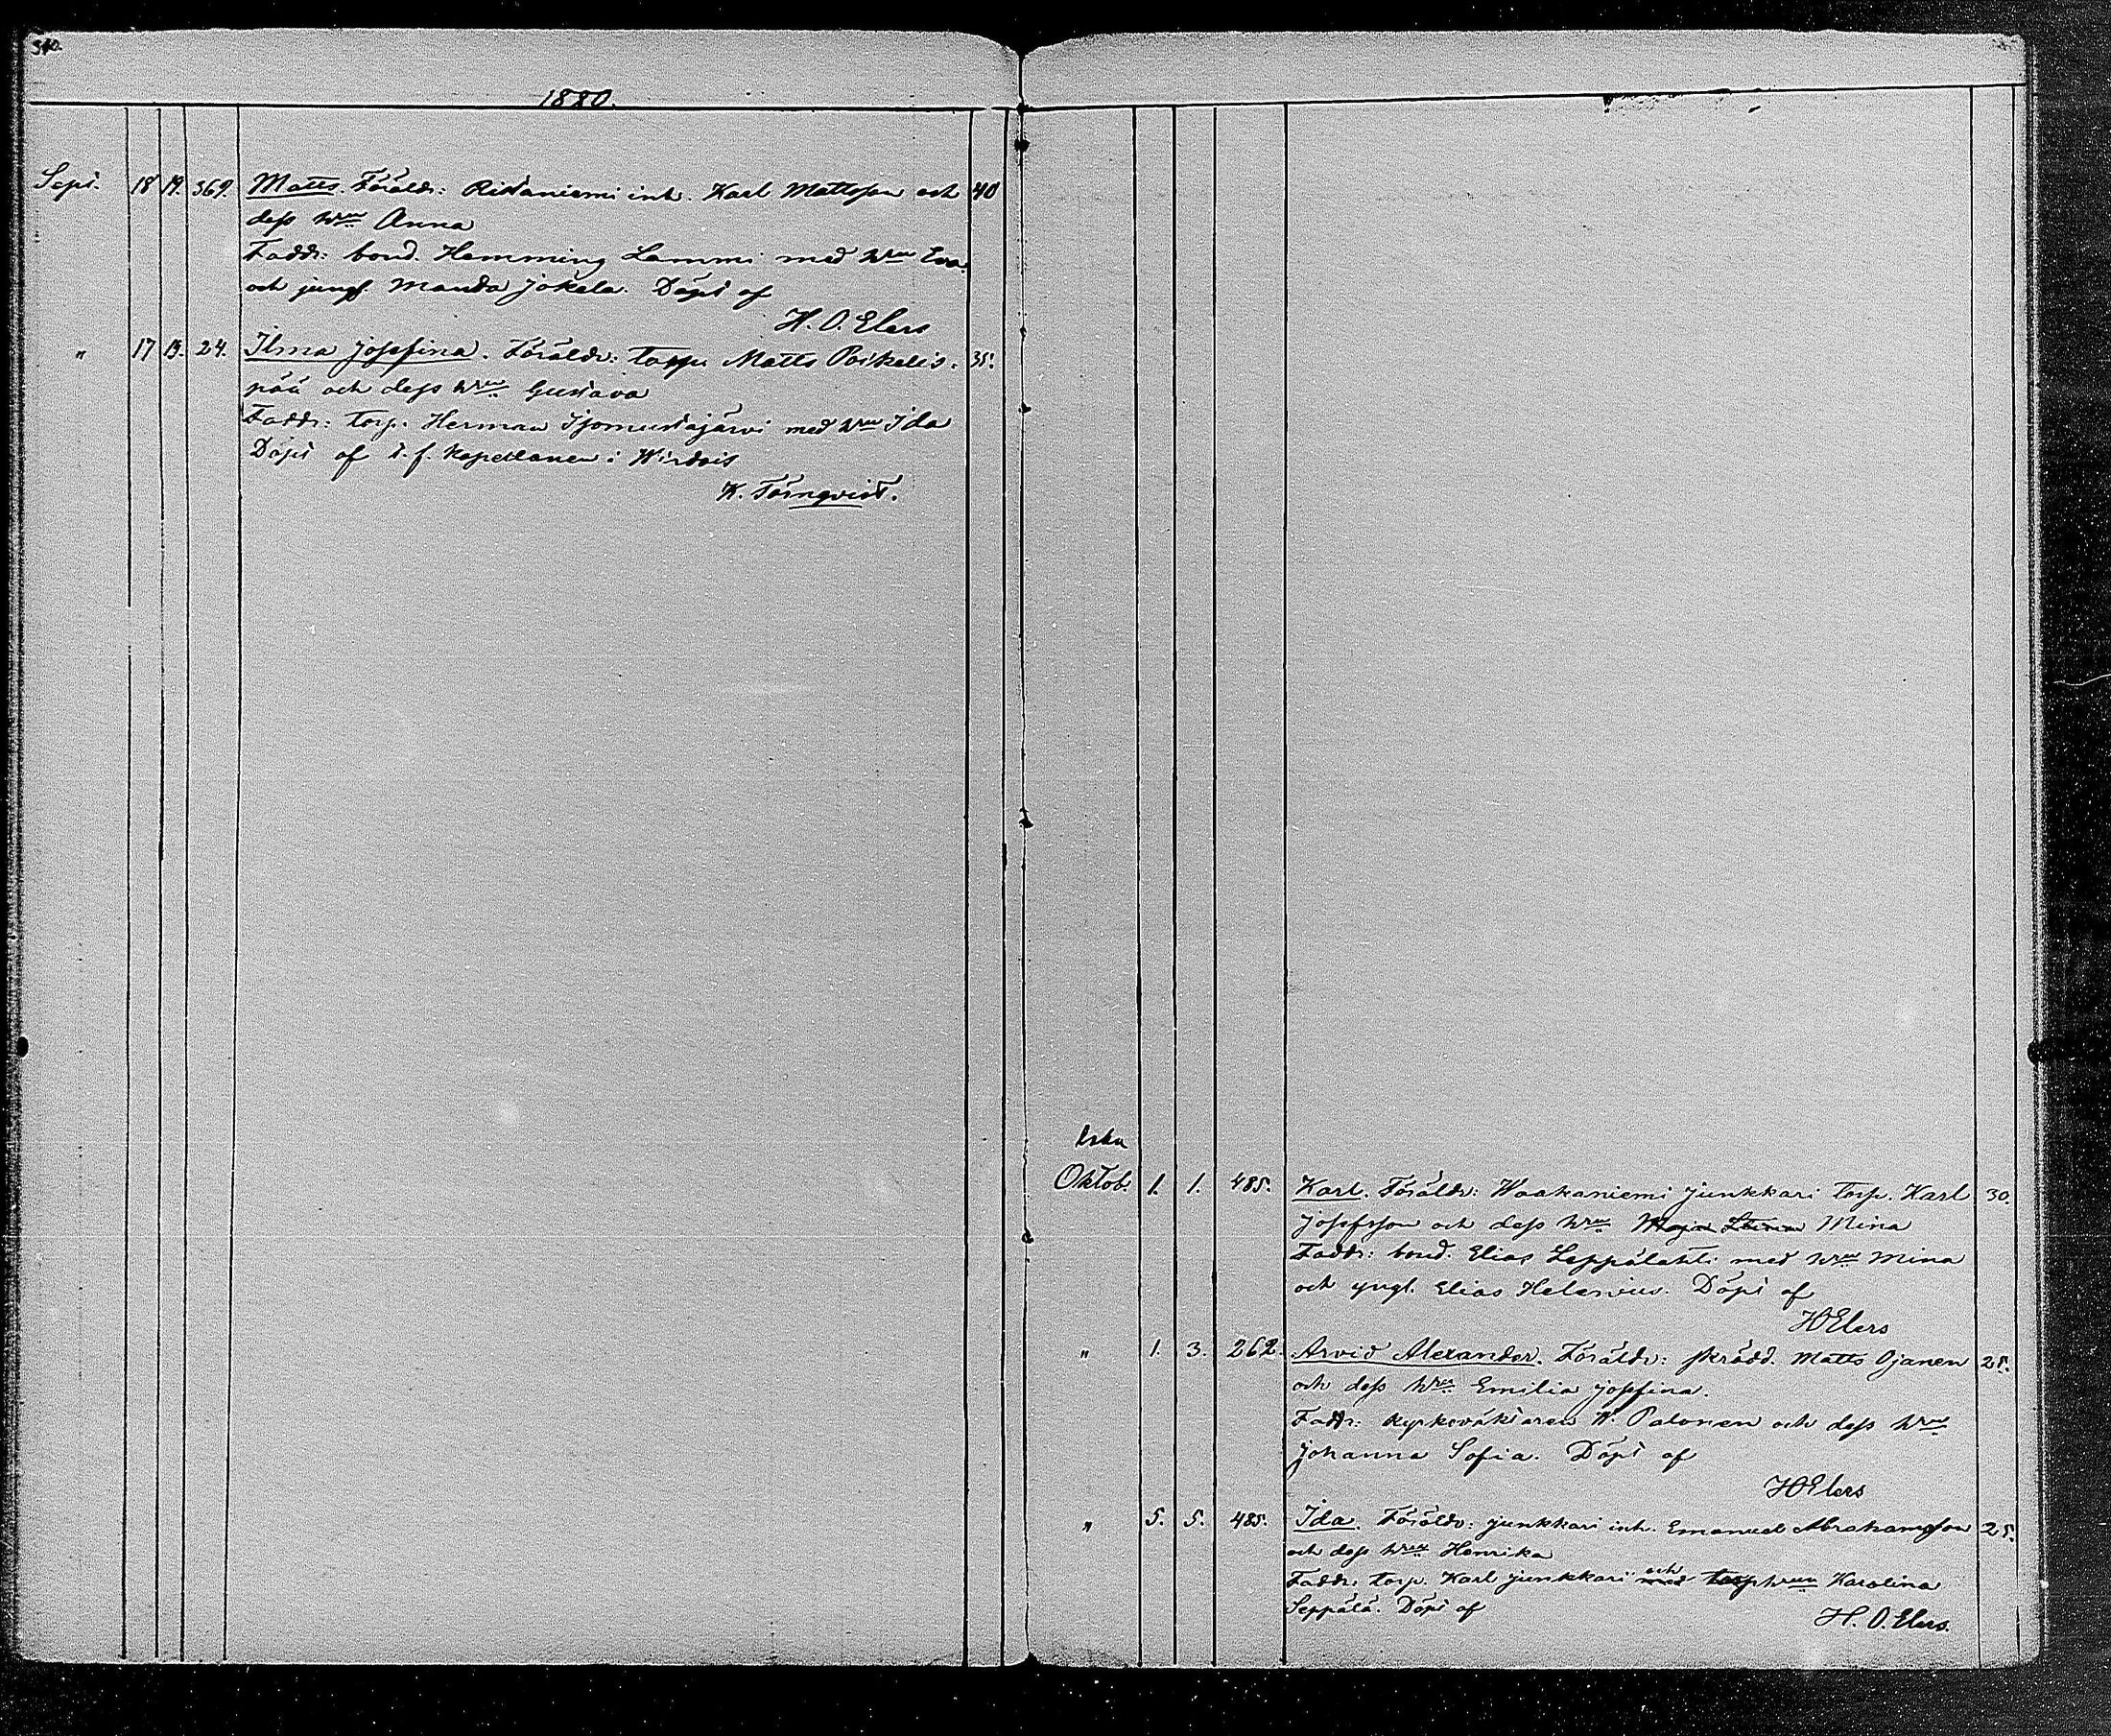 340.
1880.
Sept. 18 19. 369. Matts. Föräldr: Ristaniemi inh. Karl Mattsson och 40
dess hru Anna
Faddr: bond. Hemming Lammi med hru Eva
och jungf. Manda Jokela. Döpt af
H. O. Elers
" 17 19. 24. Ilma Josefina. Föräldr: torp. Matts Poikelis- 35.
pää och dess hru Gustava
Faddr: torp. Herman Isomustajärvi med hru Ida
Döpt af t. f. kapellanen i Wirdois
K. Törnqvist.
Oktob. 1. 1. 485. Karl. Föräldr: Waakaniemi Junkkari torp. Karl 30.
Josefsson och dess hru Maja Stina Mina
Faddr: bond. Elias Leppälahti med hru Mina
och yngl. Elias Helenius. Döpt af
HOElers
" 1. 3. 262. Arvid Alexander. Föräldr: skrädd. Matts Ojanen 25.
och dess hru Emilia Josefina.
Faddr: kyrkoväktaren K. Palonen och dess hru
Johanna Sofia. Döpt af
HOElers
" 5. 5. 485. Ida. Föräldr: Junkkari inh. Emanuel Abrahamsson 25.
och dess hru Henrika
Faddr: torp. Karl Junkkari med och torphrun Karolina
Seppälä. Döpt af
H. O. Elers.